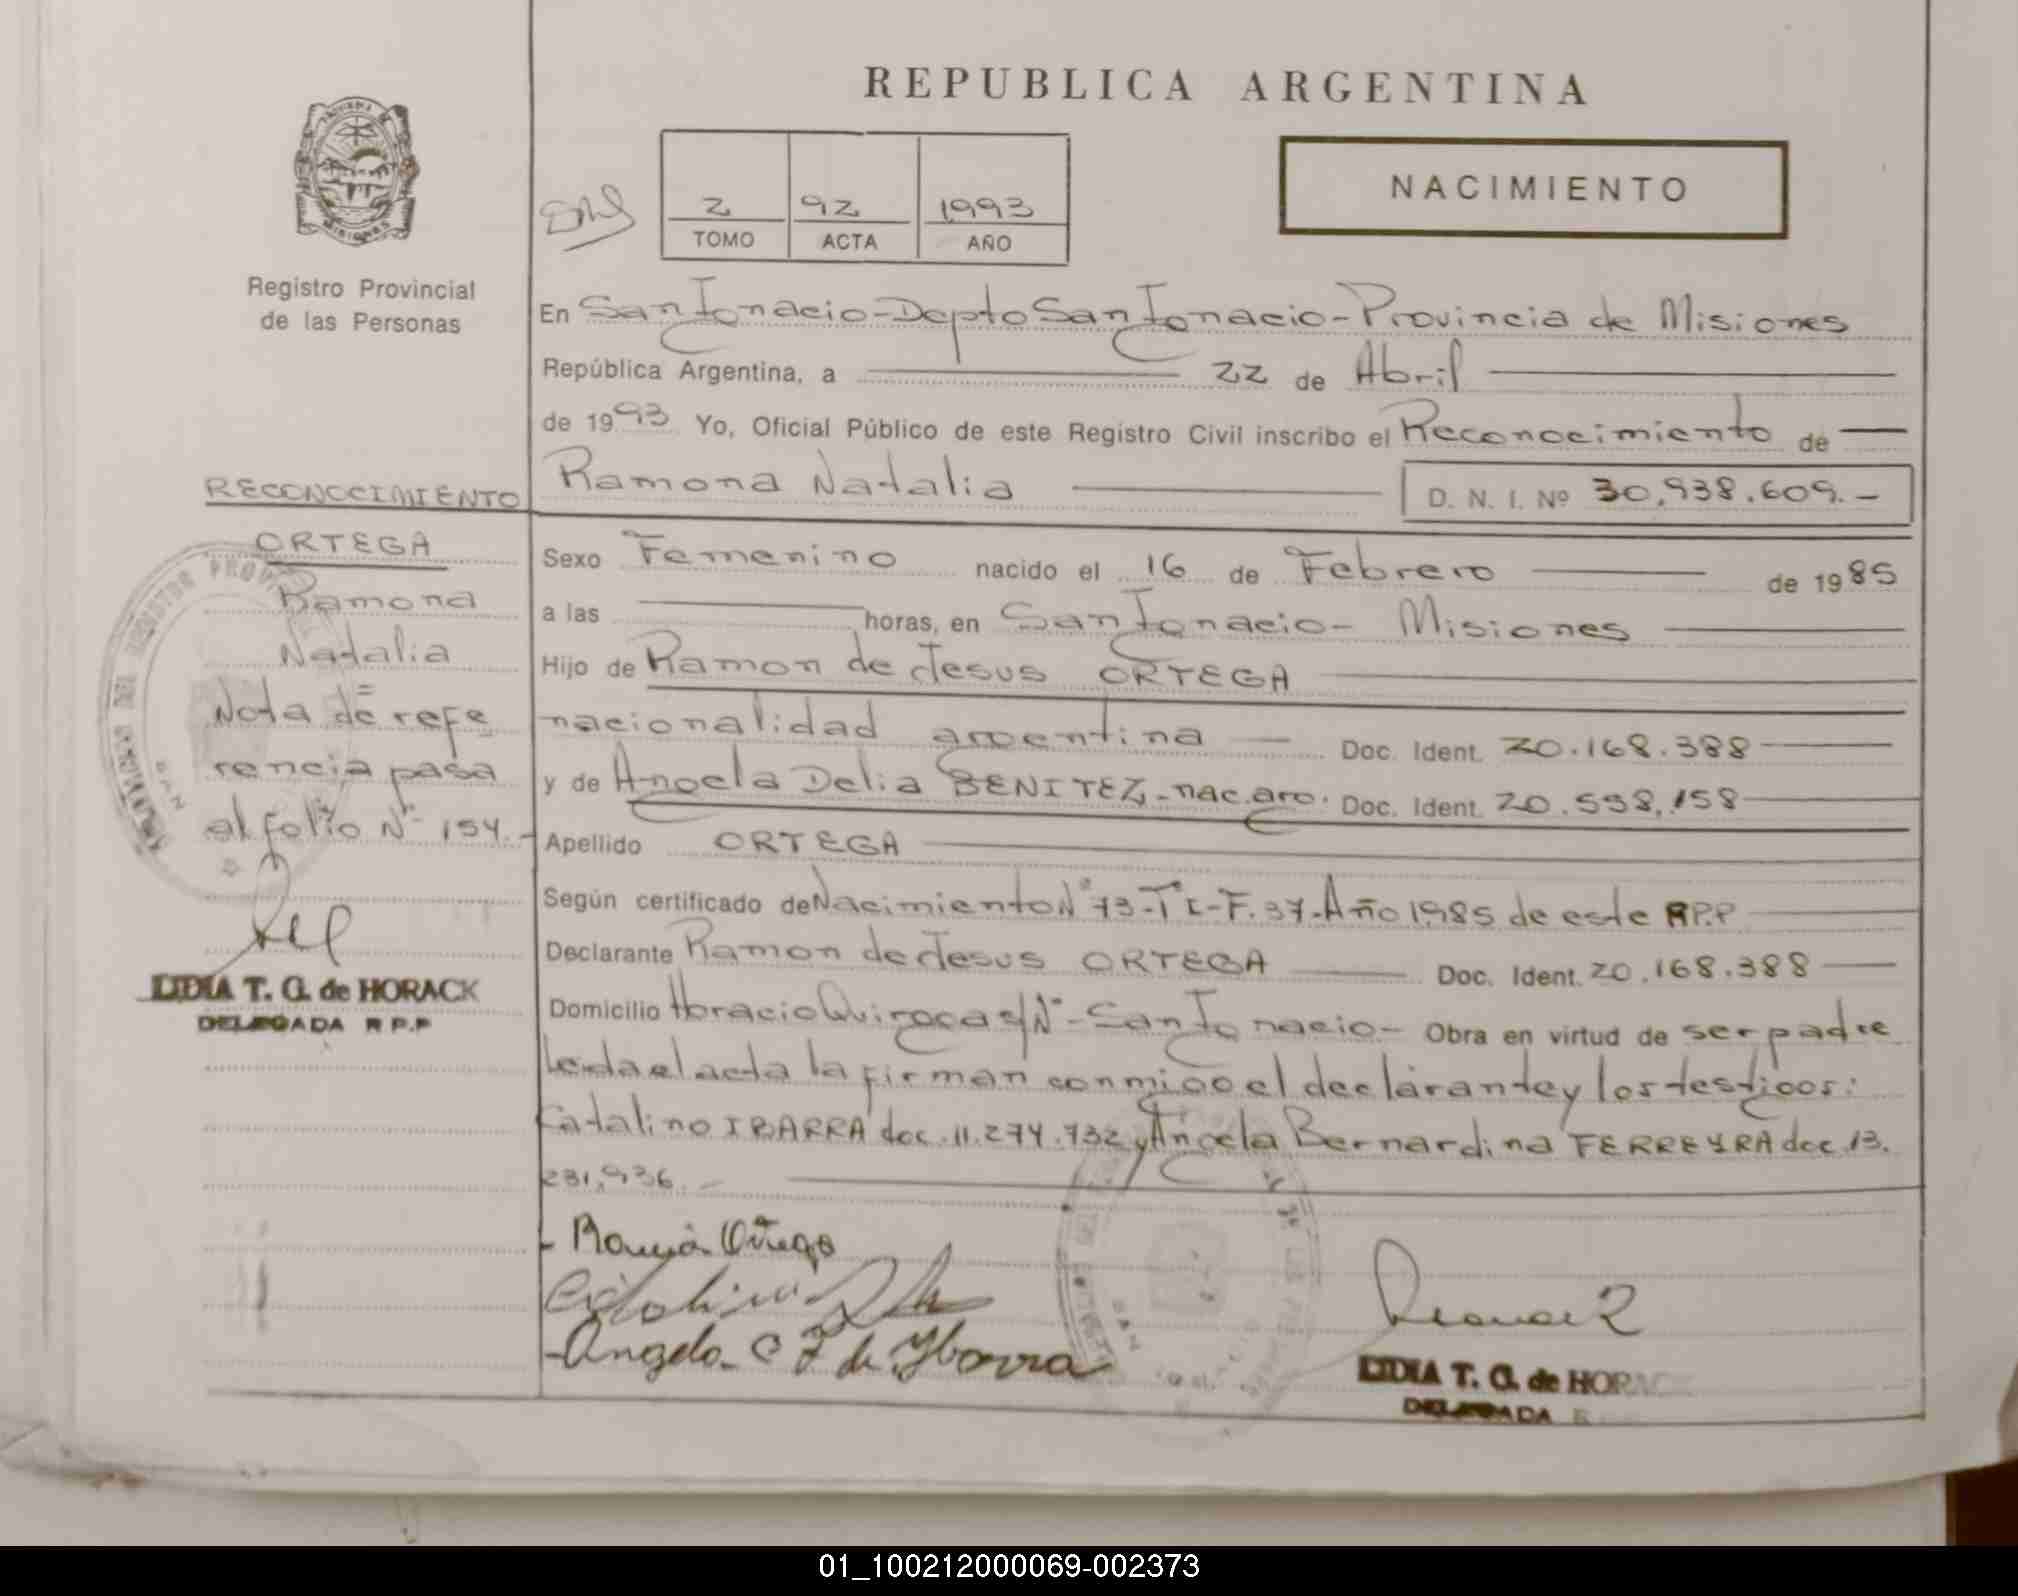 REPUBLICA ARGENTINA
NACIMIENTO
2 92 1993
TOMO ACTA AÑO
MISIONES
Registro Provincial
de las Personas
En San Ignacio-Depto San Ignacio-Provincia de Misiones
República Argentina, a 22 de Abril
de 1993 Yo, Oficial Público de este Registro Civil inscribo el Reconocimiento de
Ramona Natalia D. N. I. Nº 30.938.609.-
RECONOCIMIENTO
ORTEGA
Ramona
Natalia
Nota de refe
rencia pasa
al folio Nº 154.-
LIDIA T. G. de HORACK
DELEGADA R P.P
Sexo Femenino nacido el 16 de Febrero de 1985
a las horas, en San Ignacio- Misiones
Hijo de Ramon de Jesus ORTEGA
nacionalidad argentina Doc. Ident. 20.168.388
y de Angela Delia BENITEZ-nac.arg. Doc. Ident. 20.558.158
Apellido ORTEGA
Según certificado de Nacimiento Nº 73-Tº I-F.37-Año 1985 de este RP.P
Declarante Ramon de Jesus ORTEGA Doc. Ident. 20.168.388
Domicilio Horacio Quiroga s/Nº-San Ignacio- Obra en virtud de ser padre
Leida el acta la firman conmigo el declarante y los testigos:
Catalino IBARRA doc.11.274.732 y Angela Bernardina FERREYRA doc.13.
231.936.-
- Ramón Ortega
-Angela C F de Ybarra
LIDIA T. G. de HORAC
DELEGADA R
01_100212000069-002373